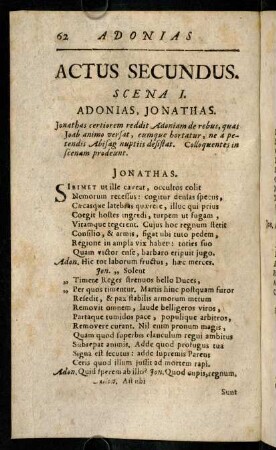 62 ADONIAS
ACTUS SECUNDUS.
SCENA I.
ADONIAS, JONATHAS.
Jonathas certiorem reddit Adoniam de rebus, quas
Joab animo versat, eumque hortatur, ne a petendis
Abisag nuptiis desistat. Colloquentes in
scenam prodeunt.
JONATHAS.
SIbimet ut ille caveat, occultos colit
Nemorum recessus: cogitur densas specus,
Cæcasque latebras quærere, illuc qui prius
Coegit hostes ingredi, turpem ut fugam,
Vitamque tegerent. Cujus hoc regnum stetit
Consilio, & armis, figat ubi tuto pedem,
Regione in ampla vix habet: toties suo
Quam victor ense, barbaro eripuit jugo.
Adon. Hic tot laborum fructus, hæc merces.
Jon. „ Solent
„ Timere Reges strenuos bello Duces,
„ Per quos timentur. Martis hinc postquam furor
Resedit, & pax stabilis armorum metum
Removit omnem, laude belligeros viros,
Partaque tumidos pace, populique arbitros,
Removere curant. Nil enim pronum magis,
Quam quod superbis clanculum regni ambitus
Subrepat animis. Adde quod profugus tua
Signa est secutus: adde supremis Parens
Ceris quod illum jussit ad mortem rapi.
Adon. Quid sperem ab illis? Jon. Quod cupis, regnum,
Adon. At ubi
Sunt